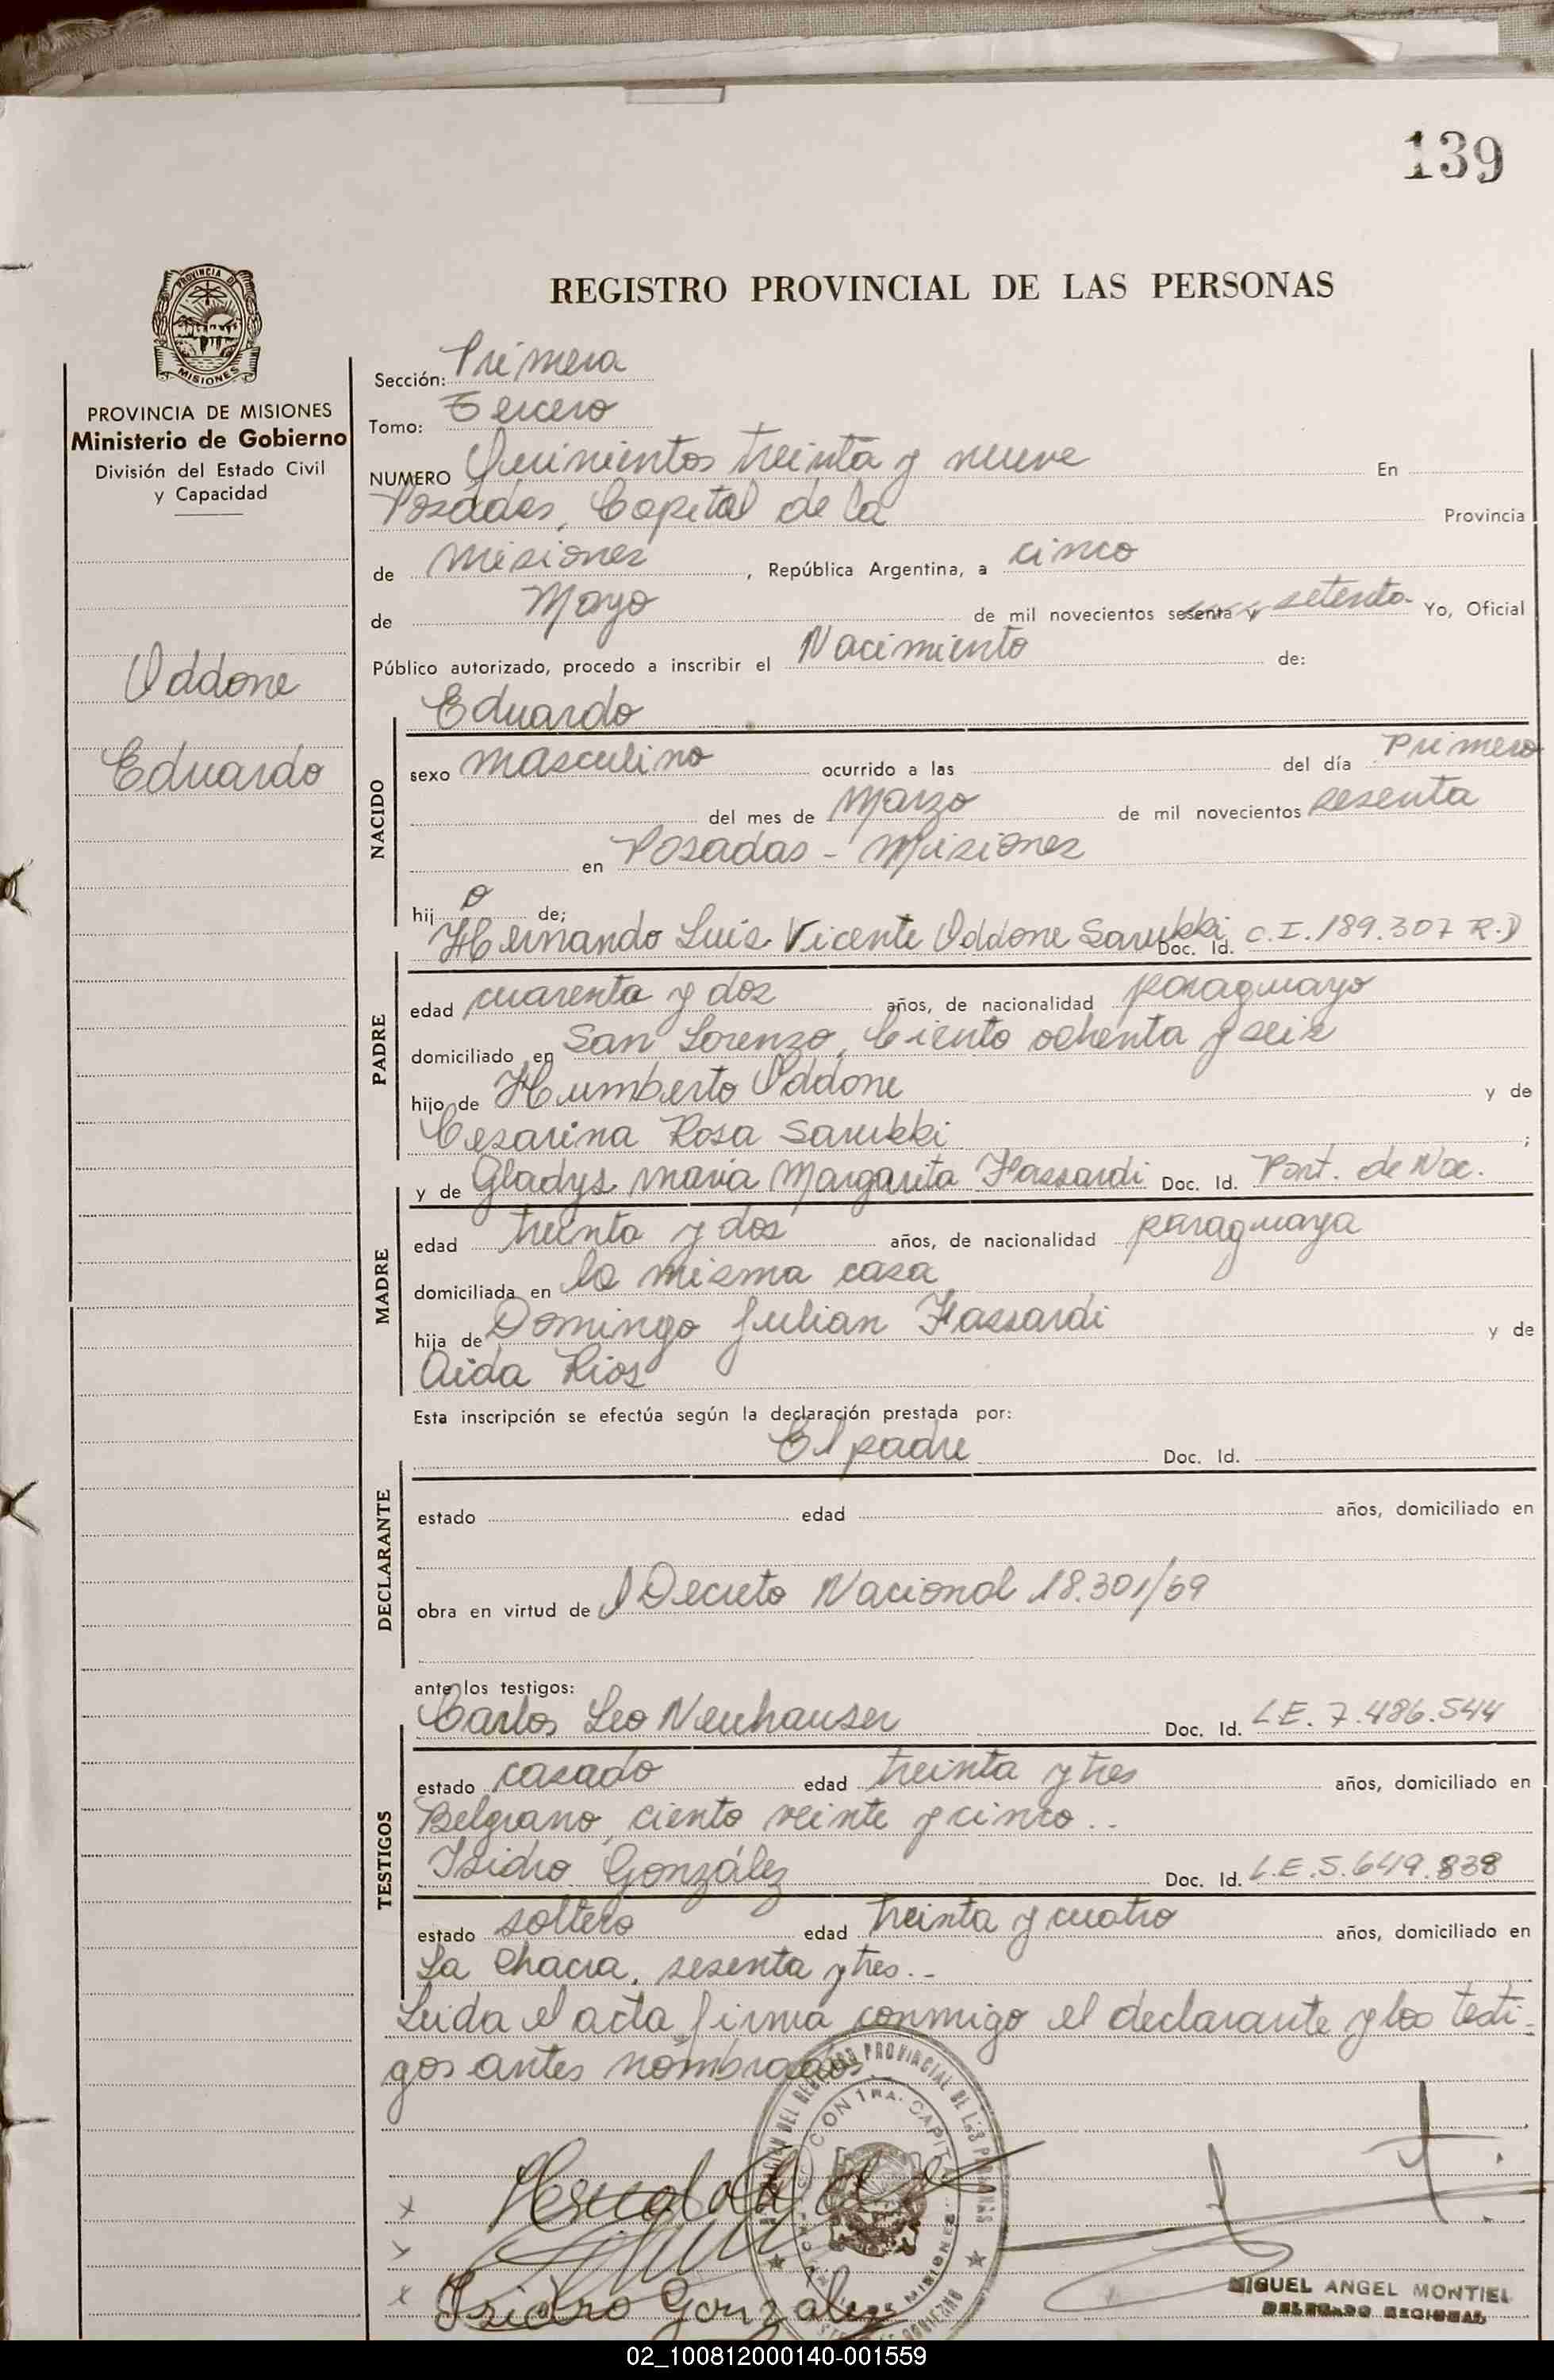 139
REGISTRO PROVINCIAL DE LAS PERSONAS
PROVINCIA DE
MISIONES
PROVINCIA DE MISIONES
Ministerio de Gobierno
División del Estado Civil
y Capacidad
Oddone
Eduardo
Sección: Primera
Tomo: Tercero
NUMERO Quinientos treinta y nueve En
Posadas, Capital de la Provincia
de Misiones, República Argentina, a cinco
de Mayo de mil novecientos sesenta y setenta Yo, Oficial
Público autorizado, procedo a inscribir el Nacimiento de:
Eduardo
NACIDO
sexo masculino ocurrido a las del día primero
del mes de Marzo de mil novecientos sesenta
en Posadas - Misiones
hijo de;
Hernando Luis Vicente Oddone Sarukki Doc. Id. C.I. 189.307 R.P
PADRE
edad cuarenta y dos años, de nacionalidad paraguayo
domiciliado en San Lorenzo, Ciento ochenta y seis
hijo de Humberto Oddone y de
Cesarina Rosa Sarukki ;
y de Gladys Maria Margarita Fassardi Doc. Id. Part. de Nac.
MADRE
edad treinta y dos años, de nacionalidad paraguaya
domiciliada en la misma casa
hija de Domingo Julian Fassardi y de
Aida Rios
Esta inscripción se efectúa según la declaración prestada por:
El padre Doc. Id.
DECLARANTE
estado edad años, domiciliado en
obra en virtud de Decreto Nacional 18.301/69
ante los testigos:
Carlos Leo Neuhauser Doc. Id. L.E. 7.486.544
TESTIGOS
estado casado edad treinta y tres años, domiciliado en
Belgrano, ciento veinte y cinco..
Isidro González Doc. Id. L.E. 5.649.838
estado soltero edad treinta y cuatro años, domiciliado en
La Chacra, sesenta y tres.-
Leida el acta firma conmigo el declarante y los testi-
gos antes nombrados
Isidro González
MIGUEL ANGEL MONTIEL
DELEGADO REGIONAL
02_100812000140-001559